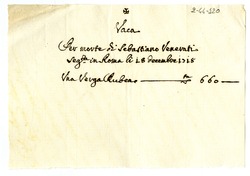 2-44-120
Vaca
Per morte di Sebastiano Venerati
segta in Roma li 18 decembre 1715
Una Verga Rubea 660